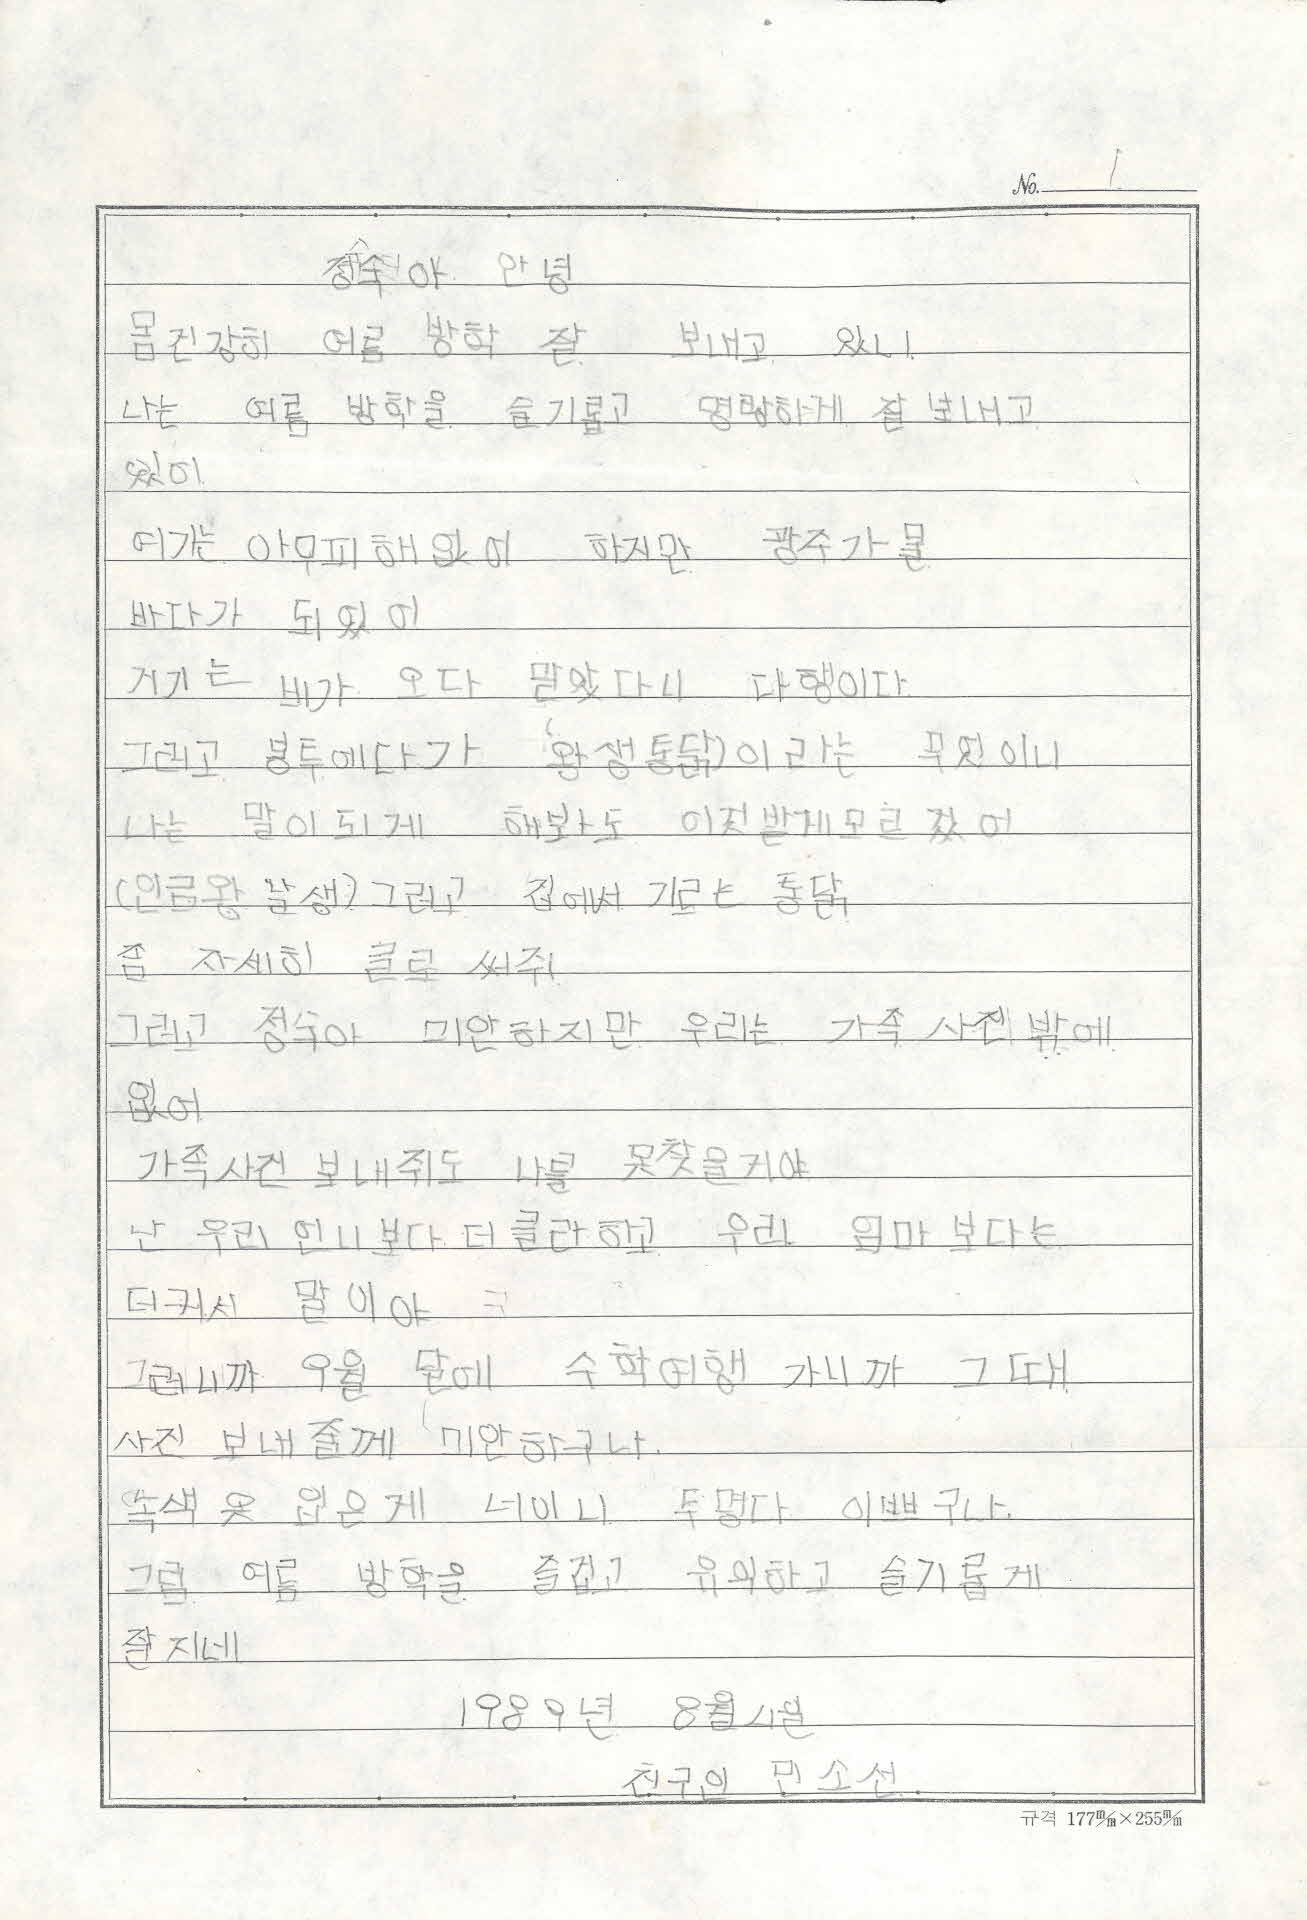 No. 1
정숙아 안녕
몸건강히 여름 방학 잘 보내고 있니
나는 여름 방학을 슬기롭고 명랑하게 잘 보내고
있어
여기는 아무피해 없어 하지만 광주가 물
바다가 되있어
거기는 비가 오다 말았다니 다행이다
그리고 봉투에다가 (왕생통닭)이라는 무엇이니
나는 말이되게 해봐도 이것밖게모르겠어
(인금왕 날생) 그리고 집에서 기르는 통닭
좀 자세히 글로 써줘
그리고 정숙아 미안하지만 우리는 가족 사진밖에
없어
가족사진 보내줘도 나를 못찾을거야
난 우리 언니보다 더클라하고 우리 엄마보다는
더커서 말이야
그러니까 9월 말에 수학여행 가니까 그때
사진 보내줄께 미안하구나.
녹색 옷 입은게 너이니 두명다 이쁘구나.
그럼 여름 방학을 즐겁고 유의하고 슬기롭게
잘지네
1989년 8월 1일
친구의 민소선
규격 177㎜×255㎜